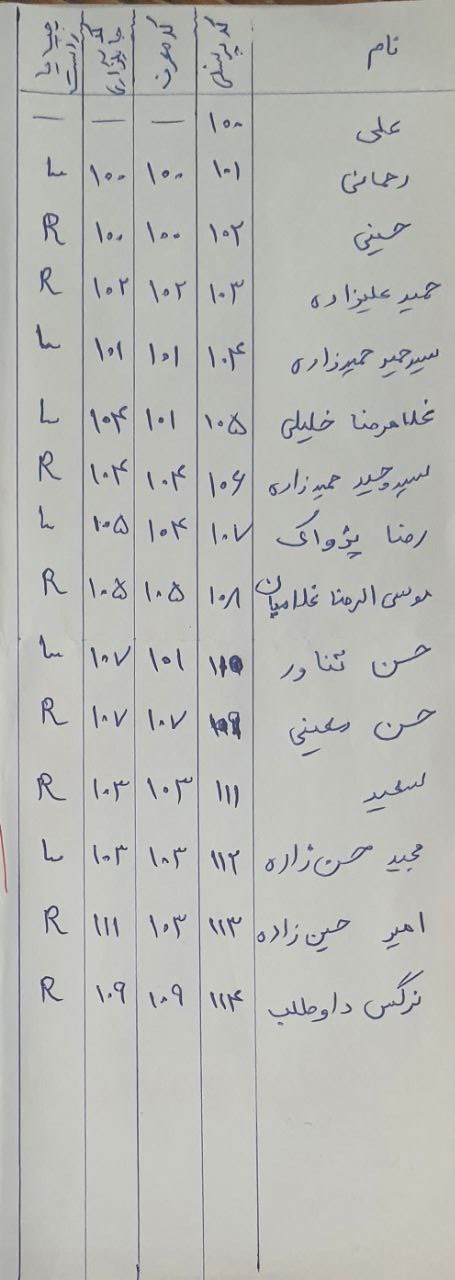 نام کد پرسنلی کد معرف کد جایگذاری چپ یا راست
علی ۱۰۰ — — —
رحمانی ۱۰۱ ۱۰۰ ۱۰۰ L
حسینی ۱۰۲ ۱۰۰ ۱۰۰ R
حمید علیزاده ۱۰۳ ۱۰۲ ۱۰۲ R
سید حمید حمیدزاده ۱۰۴ ۱۰۱ ۱۰۱ L
غلامرضا خلیلی ۱۰۵ ۱۰۱ ۱۰۴ L
سید وحید حمیدزاده ۱۰۶ ۱۰۴ ۱۰۴ R
رضا پژواک ۱۰۷ ۱۰۴ ۱۰۵ L
موسی الرضا غلامیان ۱۰۸ ۱۰۵ ۱۰۵ R
حسن تناور ۱۰۱ ۱۰۷ L
حسن معینی ۱۰۷ ۱۰۷ R
سعید ۱۱۱ ۱۰۳ ۱۰۳ R
مجید حسن زاده ۱۱۲ ۱۰۳ ۱۰۳ L
امیر حسین زاده ۱۱۳ ۱۰۳ ۱۱۱ R
نرگس داوطلب ۱۱۴ ۱۰۹ ۱۰۹ R